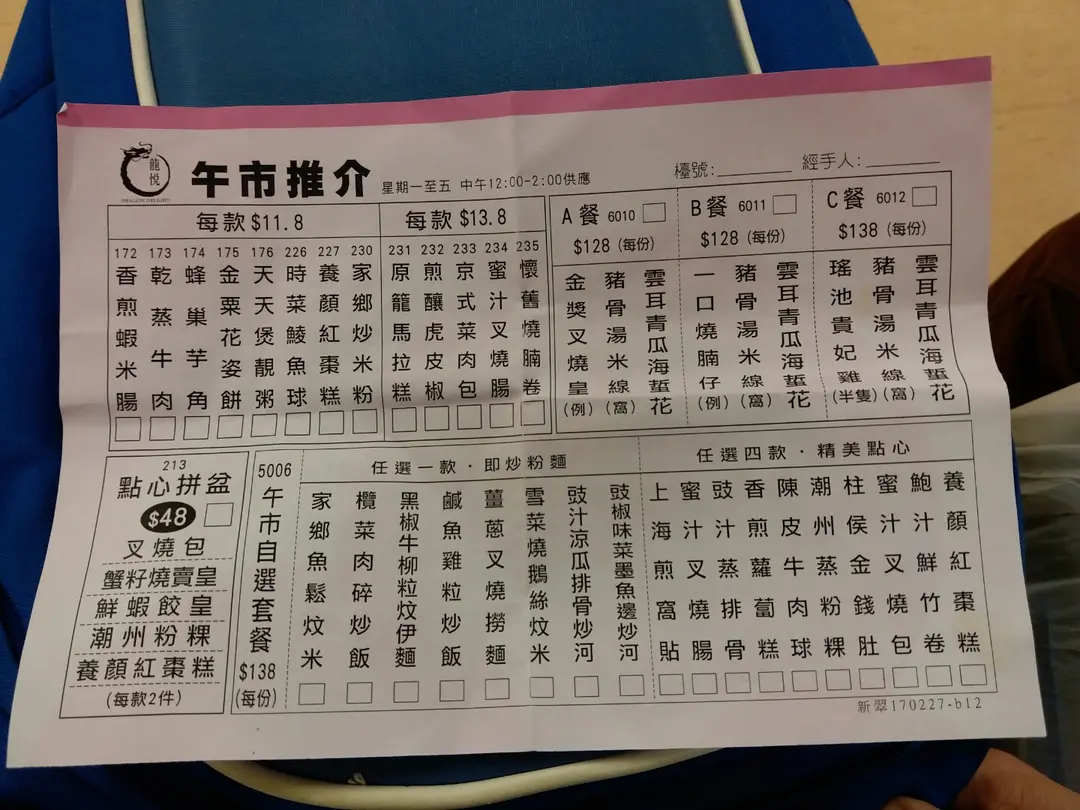 龍悅
DRAGON DELIGHT
午市推介
星期一至五 中午12:00-2:00供應
檯號:
經手人:
每款 $11.8
172 香煎蝦米腸
173 乾蒸牛肉
174 蜂巢芋角
175 金粟花姿餅
176 天天煲靚粥
226 時菜鯪魚球
227 養顏紅棗糕
230 家鄉炒米粉
每款 $13.8
231 原籠馬拉糕
232 煎釀虎皮椒
233 京式菜肉包
234 蜜汁叉燒腸
235 懷舊燒腩卷
A餐 6010
$128 (每份)
金獎叉燒皇(例)
豬骨湯米線(窩)
雲耳青瓜海蜇花
B餐 6011
$128 (每份)
一口燒腩仔(例)
豬骨湯米線(窩)
雲耳青瓜海蜇花
C餐 6012
$138 (每份)
瑤池貴妃雞(半隻)
豬骨湯米線(窩)
雲耳青瓜海蜇花
213
點心拼盆
$48
叉燒包
蟹籽燒賣皇
鮮蝦餃皇
潮州粉粿
養顏紅棗糕
(每款2件)
5006
午市自選套餐
$138
(每份)
任選一款·即炒粉麵
家鄉魚鬆炆米
欖菜肉碎炒飯
黑椒牛柳粒炆伊麵
鹹魚雞粒炒飯
薑蔥叉燒撈麵
雪菜燒鵝絲炆米
豉汁涼瓜排骨炒河
豉椒味菜墨魚邊炒河
任選四款·精美點心
上海煎窩貼
蜜汁叉燒腸
豉汁蒸排骨
香煎蘿蔔糕
陳皮牛肉球
潮州蒸粉粿
柱侯金錢肚
蜜汁叉燒包
鮑汁鮮竹卷
養顏紅棗糕
新翠170227-b12